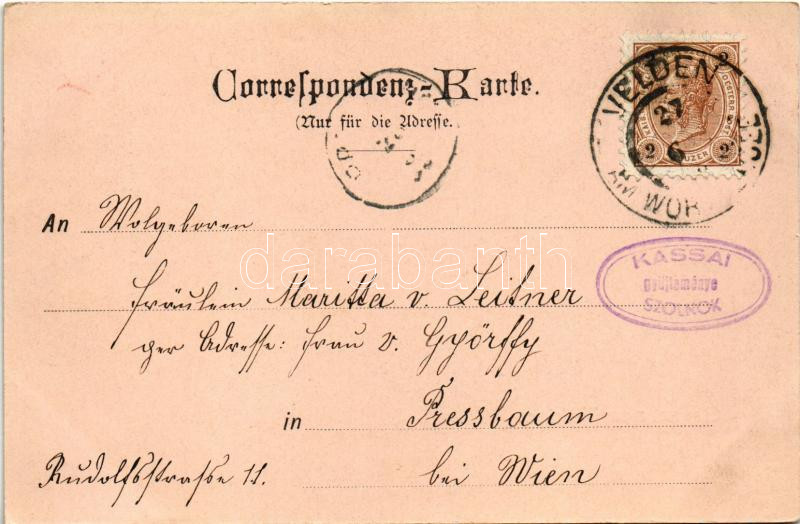 Correspondenz-Karte.
(Nur für die Adresse.
An Wolgeboren
Fräulein Maritta v. Leitner
per Adresse: Frau v. Györffy
in Pressbaum
Rudolfsstrasse 11. bei Wien
VELDEN
27
6
AM WÖR
2 2
2 KREUZER 2
KASSAI
gyűjteménye
SZOLNOK
darabanth